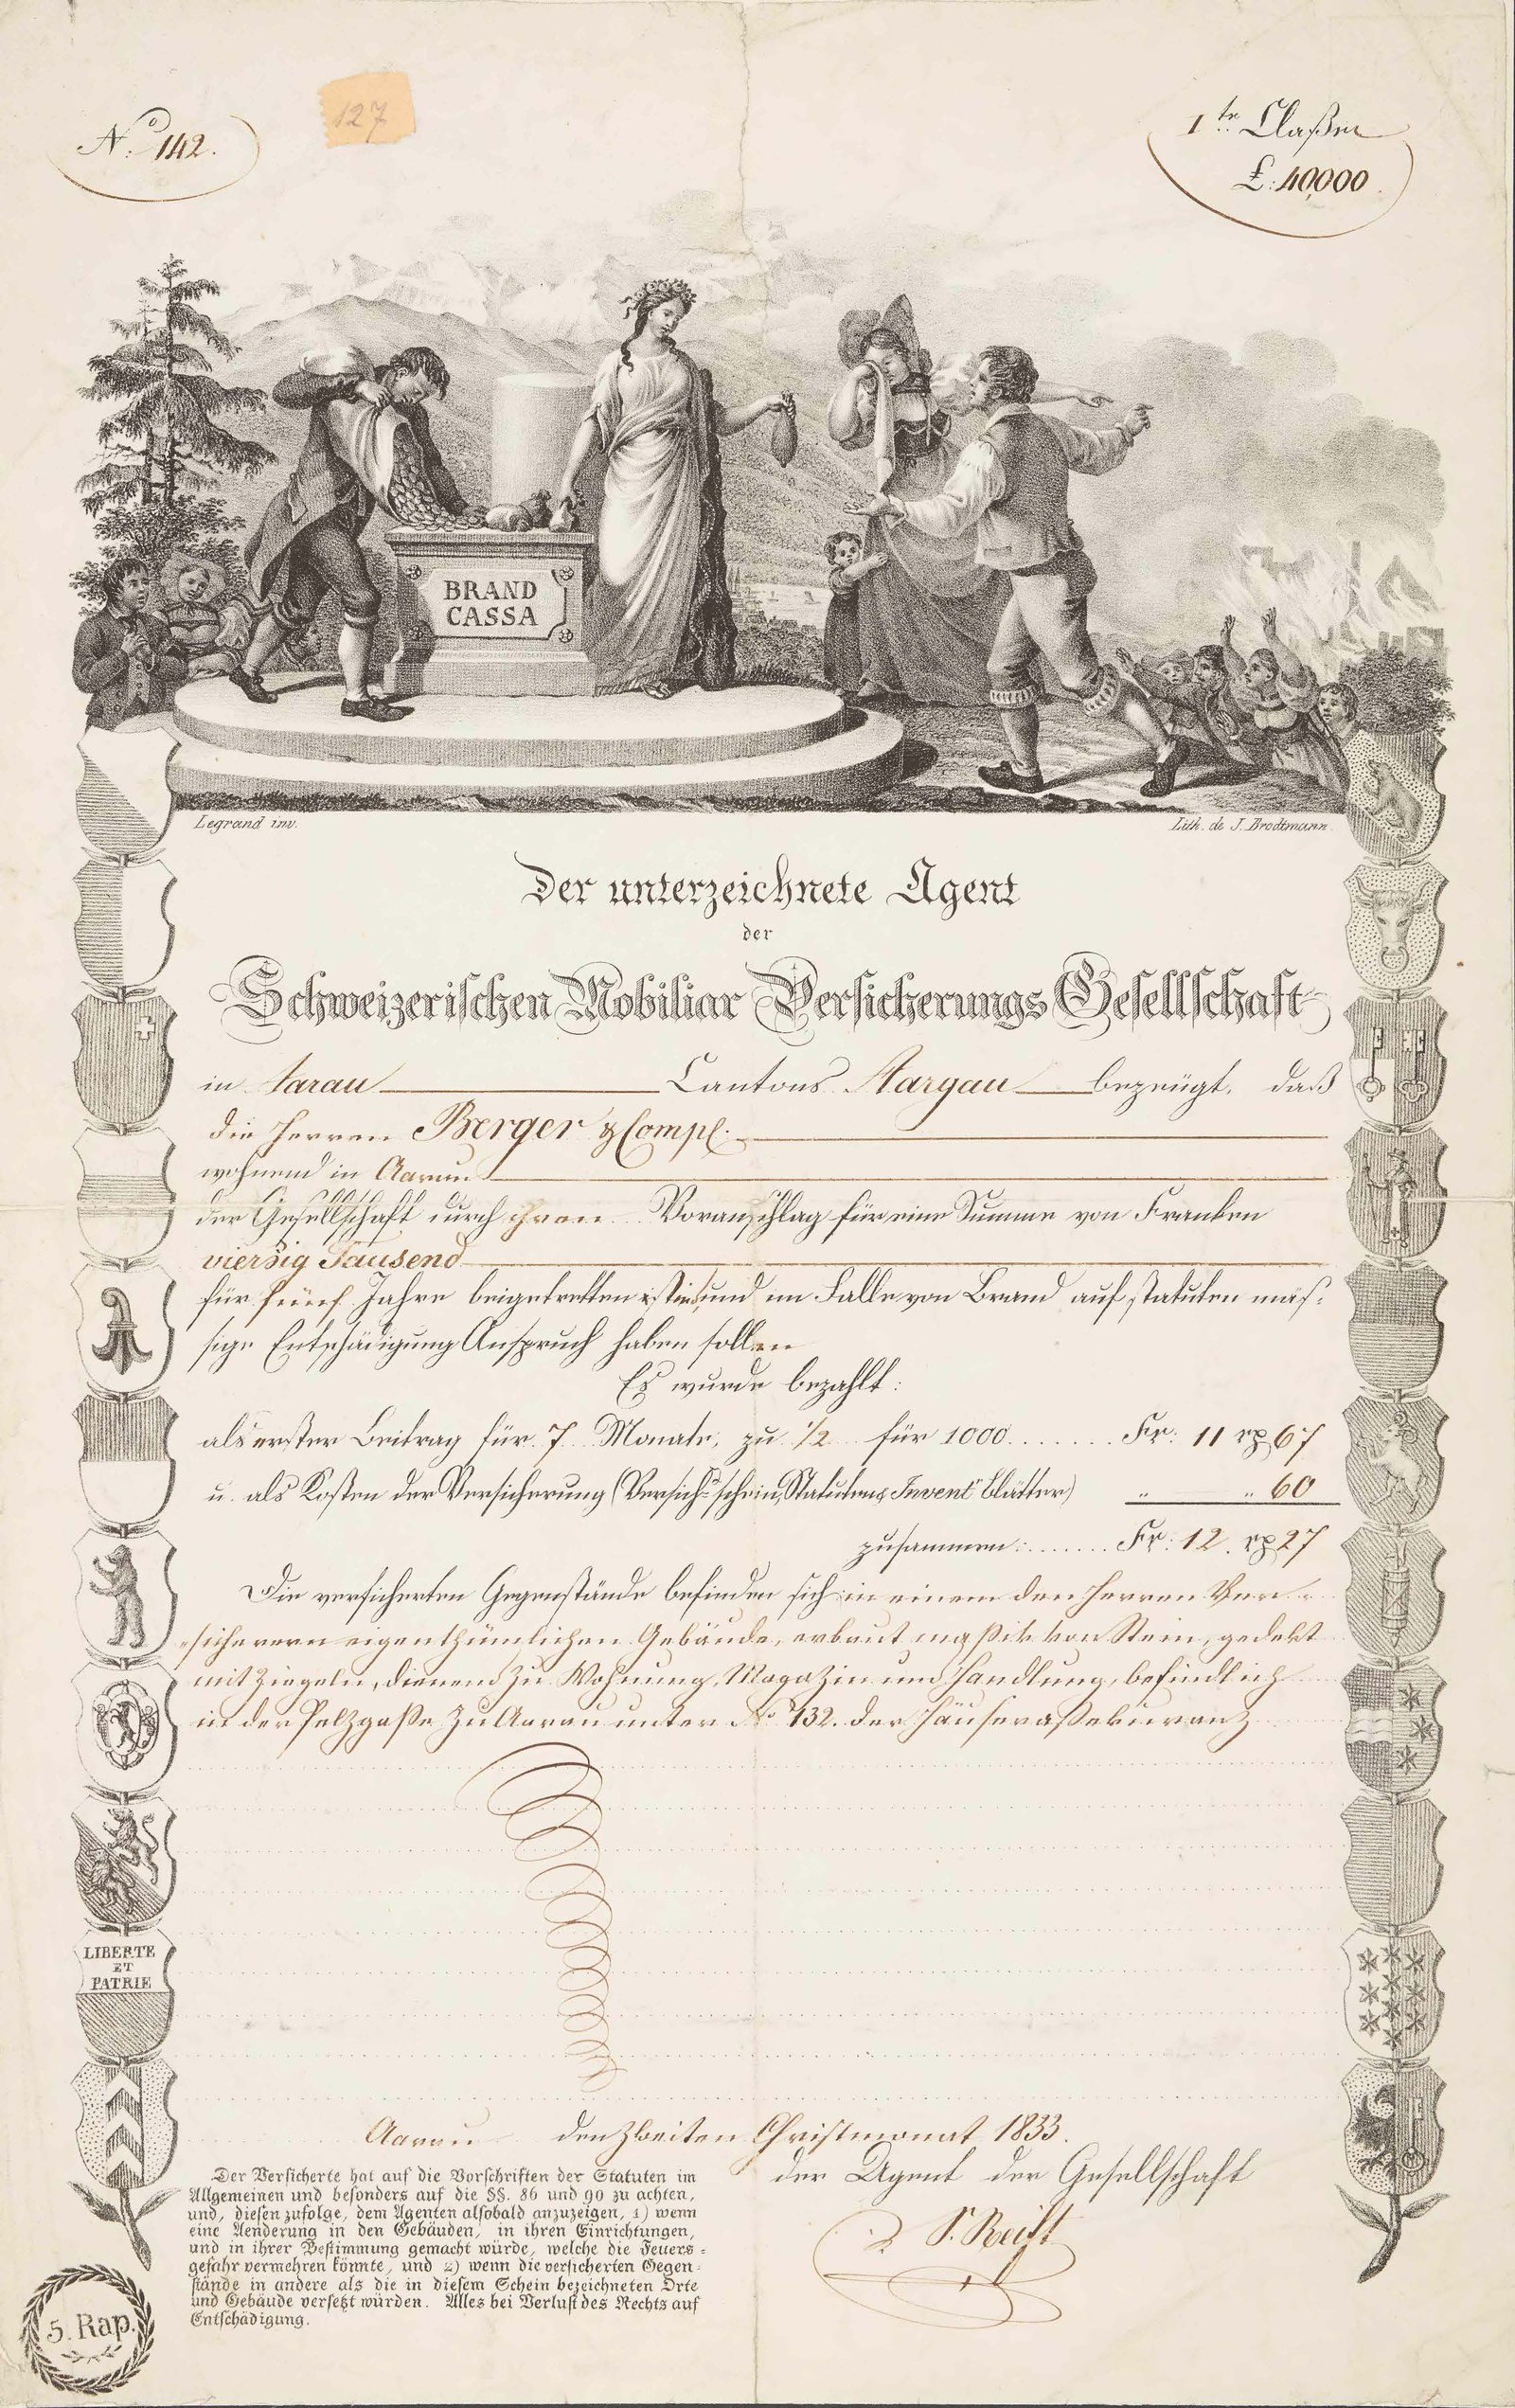 No. 142.
127
1te. Claßen
£: 40,000.
BRAND
CASSA
Legrand inv.
Lith. de J. Brodtmann.
Der unterzeichnete Agent
der
Schweizerischen Mobiliar Versicherungs Gesellschaft
in Aarau Cantons Aargau bezeugt, daß
die Herren Berger & Comp.
wohnend in Aarau
der Gesellschaft durch ihren Voranschlag für eine Summe von Franken
vierzig Tausend
für fünf Jahre beigetretten sind, und im Falle von Brand auf statuten mäs-
sige Entschädigung Anspruch haben sollen
Es wurde bezahlt:
als erster Beitrag für 7 Monate, zu 1/2 für 1000 ....... Fr: 11 rp 67
u. als Kosten der Versicherung (Versich:schein, Statuten & Invent: blätter) " " 60
zusammen: ....... Fr: 12. rp 27
Die versicherten Gegenstände befinden sich in einem den Herren Ver-
sicherern eigenthümlichen Gebäude, erbaut maßiv von Stein, gedekt
mit Ziegeln, dienend zu Wohnung, Magazin und Handlung, befindlich
in der Pelzgaße zu Aarau unter No. 132. der Häuseraßekuranz
LIBERTE
ET
PATRIE
Aarau den zweiten Christmonat 1833.
der Agent der Gesellschaft
Der Versicherte hat auf die Vorschriften der Statuten im
Allgemeinen und besonders auf die §§. 86 und 90 zu achten,
und, diesen zufolge, dem Agenten alsobald anzuzeigen, 1) wenn
eine Aenderung in den Gebäuden, in ihren Einrichtungen,
und in ihrer Bestimmung gemacht würde, welche die Feuers-
gefahr vermehren könnte, und 2) wenn die versicherten Gegen-
stände in andere als die in diesem Schein bezeichneten Orte
und Gebäude versetzt würden. Alles bei Verlust des Rechts auf
Entschädigung.
5. Rap.